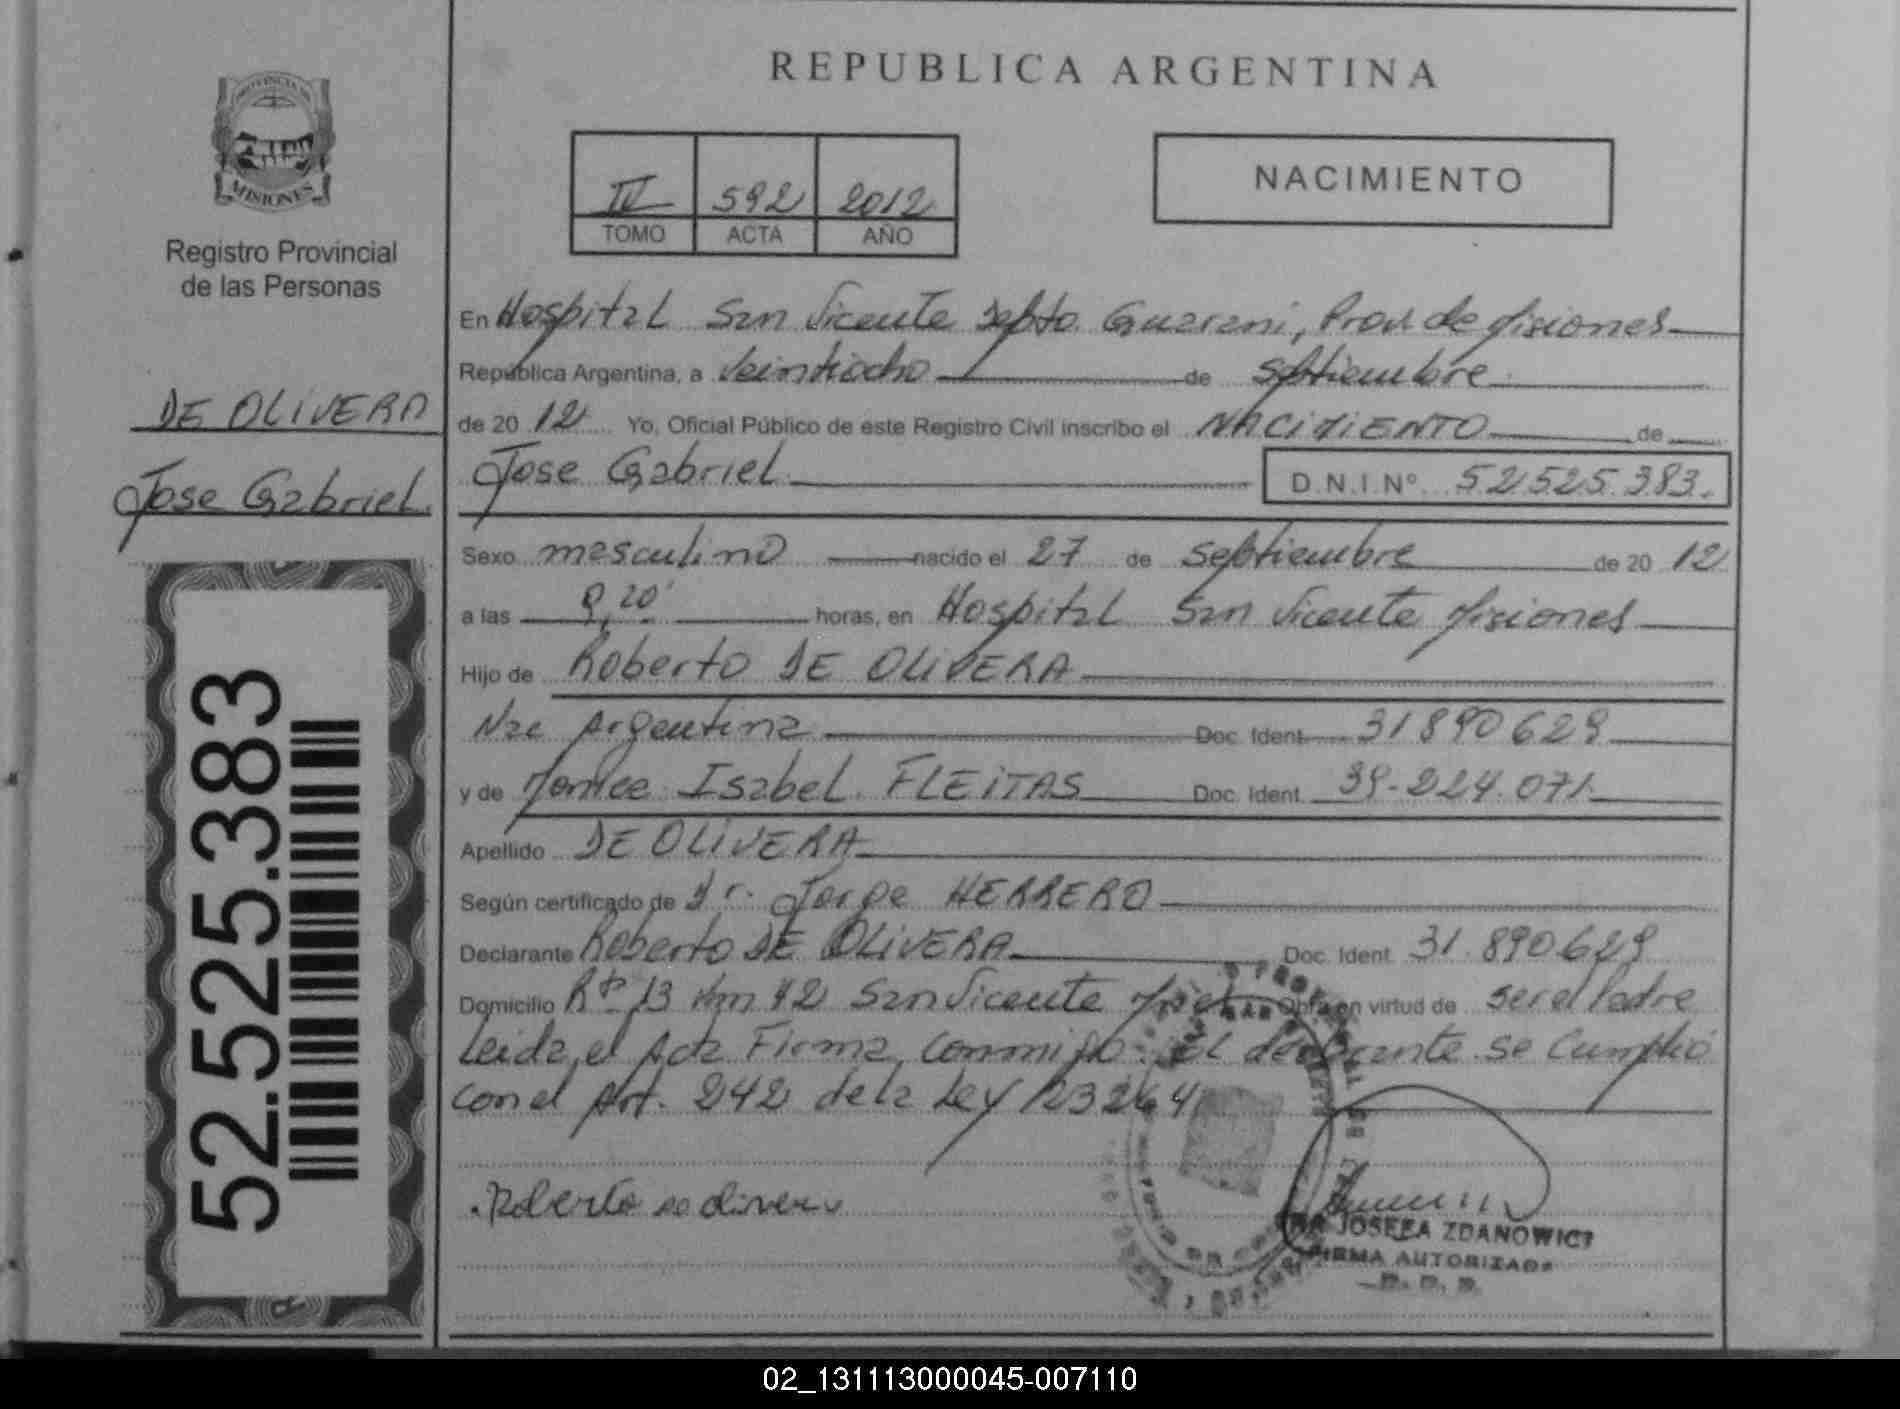 REPUBLICA ARGENTINA
PROVINCIA DE
MISIONES
Registro Provincial
de las Personas
IV 592 2012
TOMO ACTA AÑO
NACIMIENTO
DE OLIVERA
Jose Gabriel
52.525.383
En Hospital San Vicente Depto Guarani, Prov. de Misiones
Republica Argentina, a Veintiocho de Septiembre
de 20 12 Yo, Oficial Público de este Registro Civil inscribo el NACIMIENTO de
Jose Gabriel D.N.I.Nº 52525.383.
Sexo masculino nacido el 27 de Septiembre de 20 12
a las 8,20' horas, en Hospital San Vicente Misiones
Hijo de Roberto DE OLIVERA
Nac Argentina Doc. Ident. 31890629
y de Isabel FLEITAS Doc. Ident. 39.224.071
Apellido DE OLIVERA
Según certificado de Dr. Jorge HERRERO
Declarante Roberto DE OLIVERA Doc. Ident. 31.890629
Domicilio Rta 13 Km 42 San Vicente Mnes Obra en virtud de ser el Padre
Leida el Acta Firma Conmigo el declarante se Cumplió
con el Art. 242 de la Ley 23264
Roberto de olivera
JOSEFA ZDANOWICZ
FIRMA AUTORIZADA
02_131113000045-007110